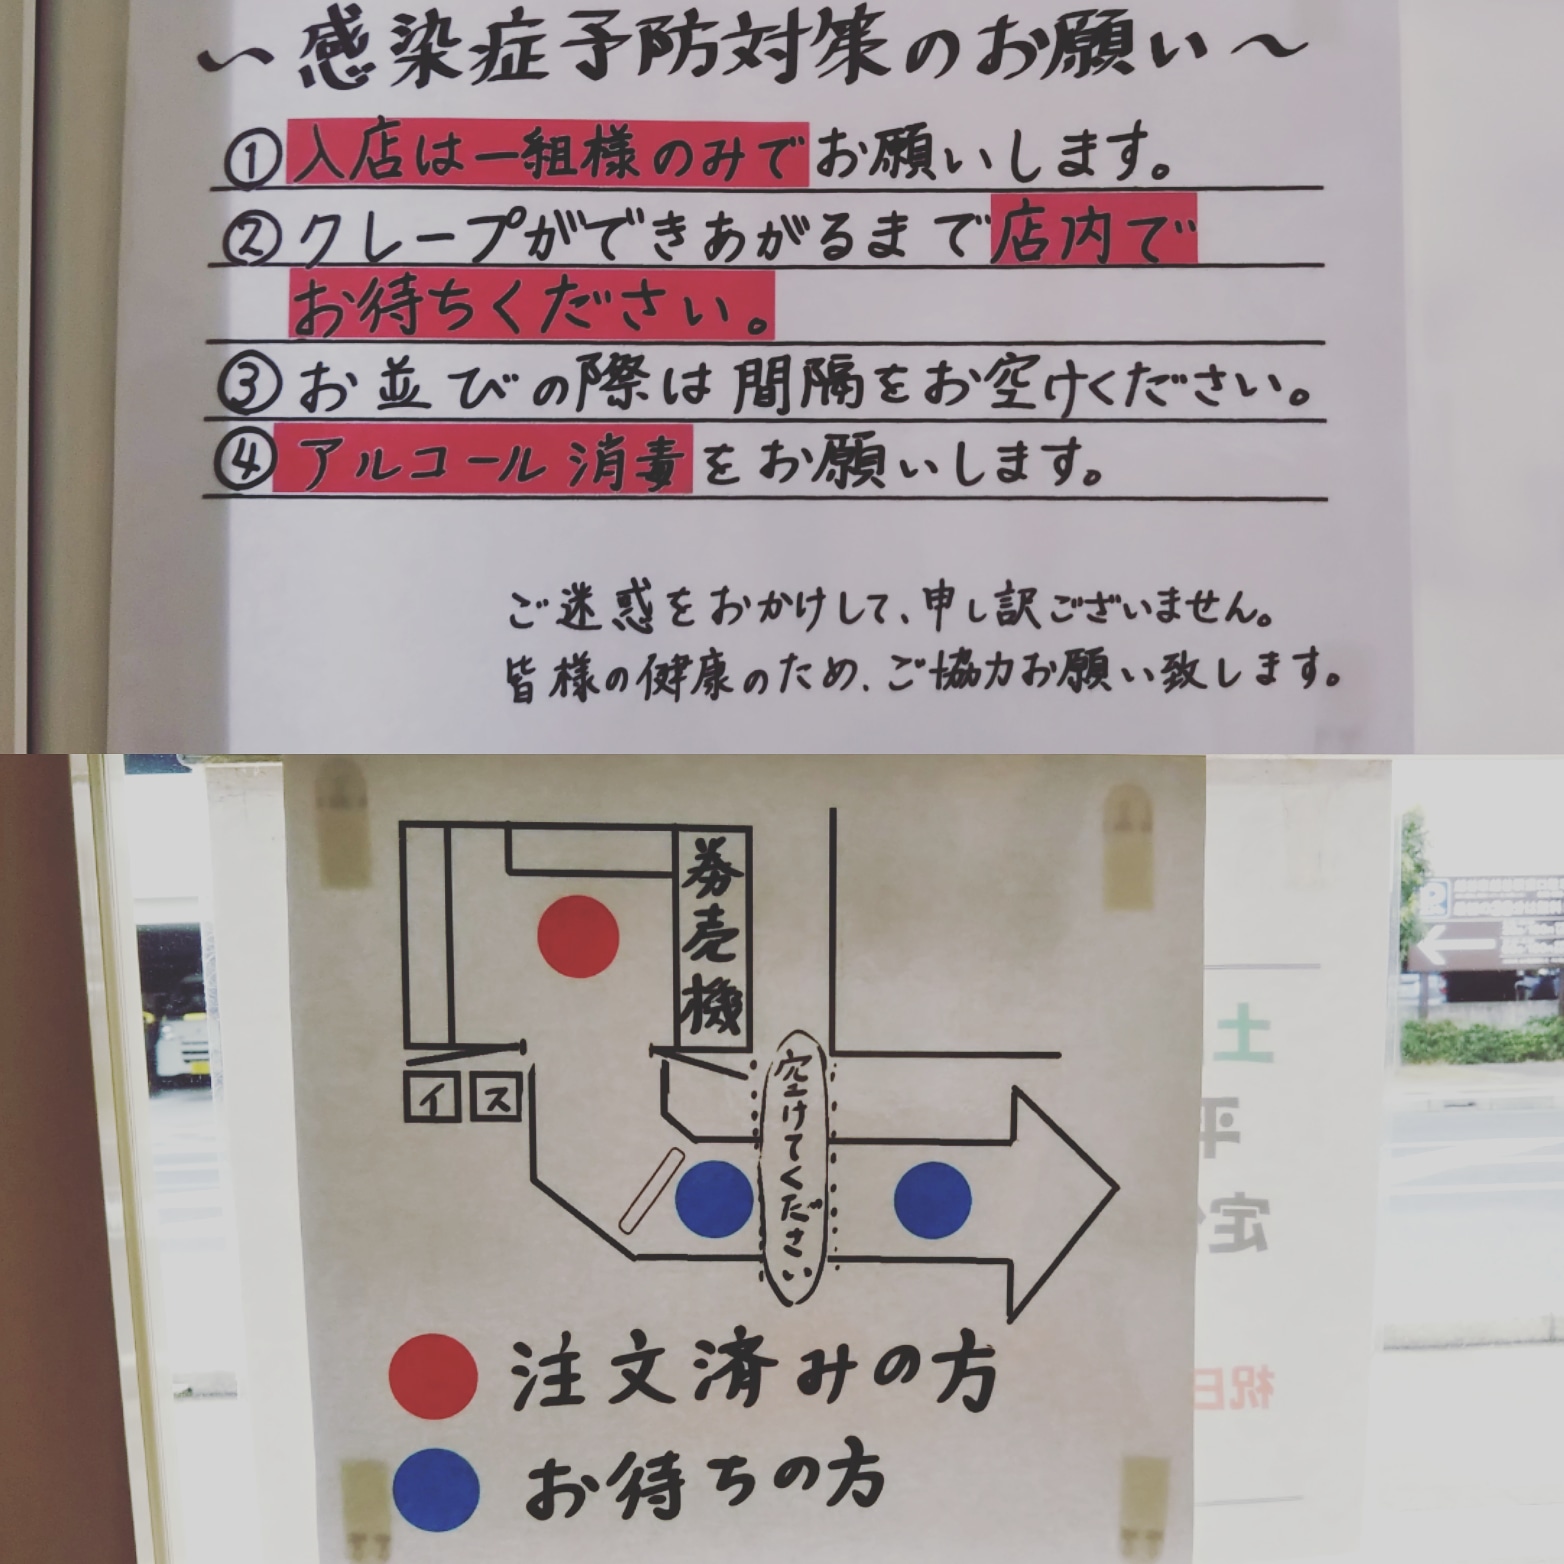 ～感染症予防対策のお願い～
①入店は一組様のみでお願いします。
②クレープができあがるまで店内で
お待ちください。
③お並びの際は間隔をお空けください。
④アルコール消毒をお願いします。
ご迷惑をおかけして、申し訳ございません。
皆様の健康のため、ご協力お願い致します。
券売機
イス
空けてください
注文済みの方
お待ちの方
土
平
定
祝日
P